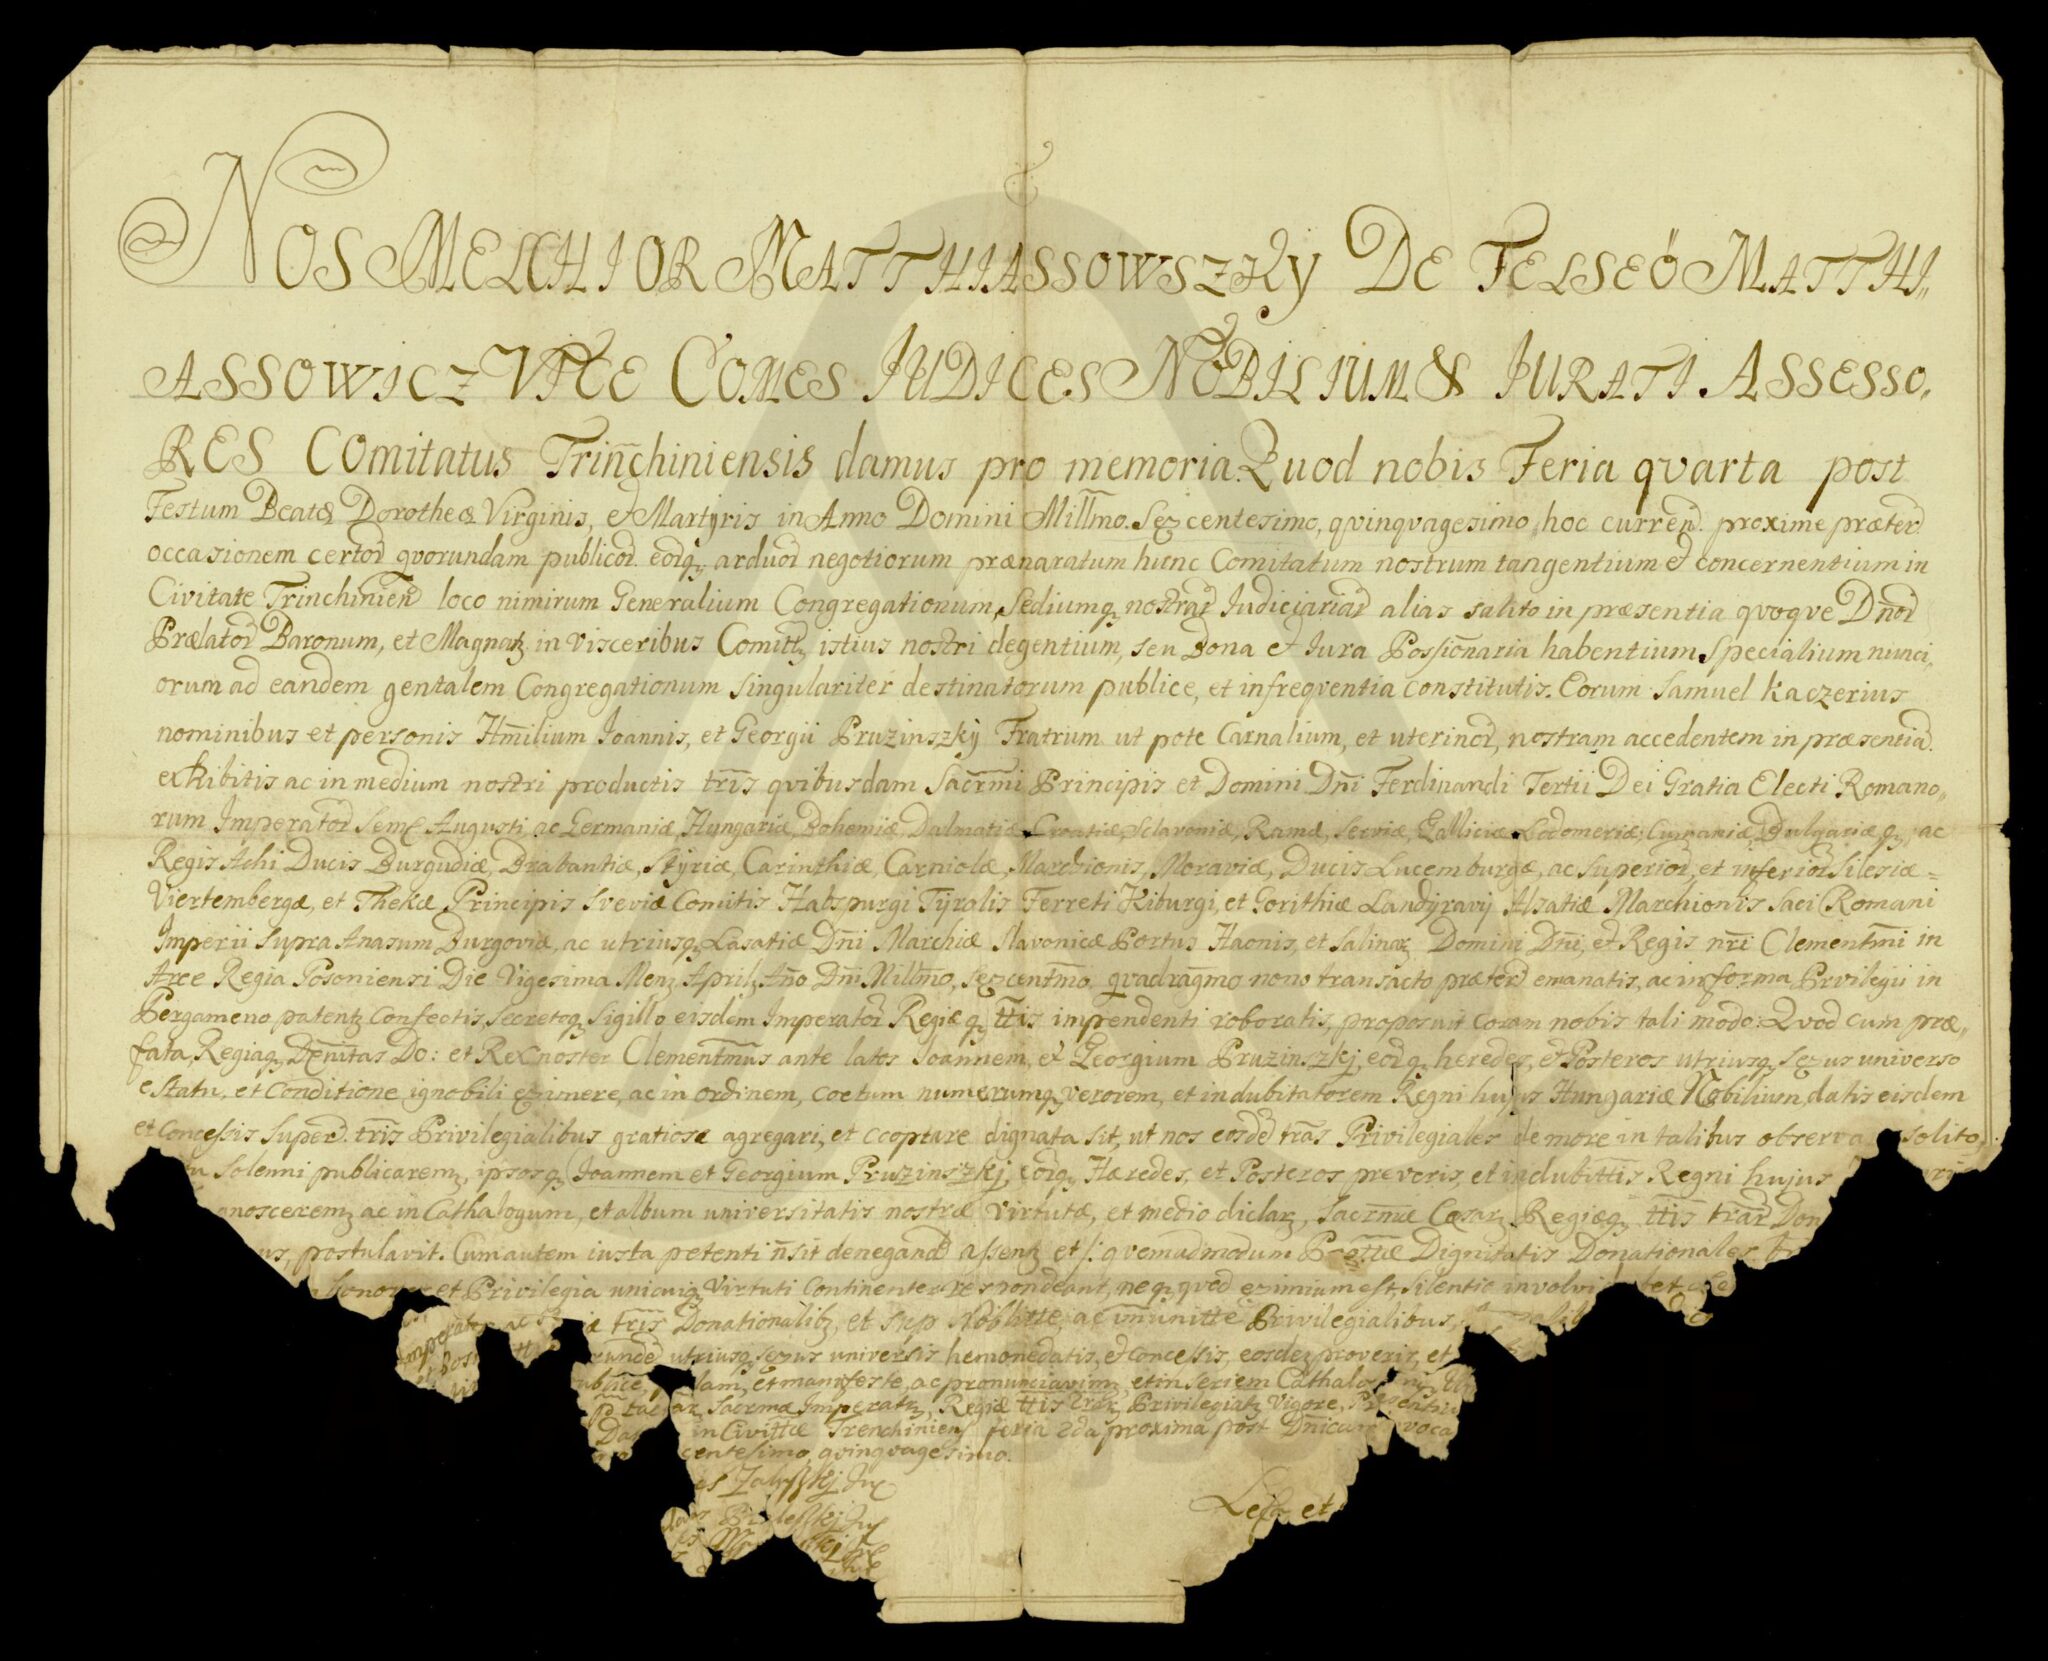 NOS MELCHIOR MATTHIASSOWSZKY DE FELSEÖ MATTHI„
ASSOWICZ VICE COMES JUDICES NOBILIUM & JURATI ASSESSO„
RES COmitatus Trinc̄hiniensis damus pro memoria. Quod nobis Feria qvarta post
Festum Beatæ Dorotheæ Virginis, et Martyris in Anno Domini Millm̄o. Sexcentesimo, qvinqvagesimo, hoc currend. proxime præterd.
occasionem certor qvorundam publicor eorq; arduor negotiorum prænaratum hunc Comitatum nostrum tangentium et concernentium in
Civitate Trinchinien loco nimirum Generalium Congregationum, Sediumq; nostrar Judiciariar alias salito in præsentia qvoqve Dn̄or
Prælator Baronum, et Magnatz in visceribus Comitt̄z istius nostri degentium, seu Bona et Jura Possion̄aria habentium Specialium nunci„
orum ad eandem gentalem Congregationum singulariter destinatorum publice, et infreqventia constitutis. Eorum Samuel Kaczerius
nominibus et personis Hm̄ilium Joannis, et Georgii Pruzinszkij Fratrum ut pote Carnalium, et uterinor, nostram accedentem in præsentia.
exhibitis ac in medium nostri productis tr̄is qvibusdam Sacr̄m̄i Principis et Domini Dn̄i Ferdinandi Tertii Dei Gratia Electi Romano„
rum Imperator Semp Augusti, ac Germaniæ, Hungariæ, Bohemiæ, Dalmatiæ, Croatiæ, Sclavoniæ, Ramæ, Serviæ, Galliciæ Lodomeriæ, Cumaniæ, Bulgariæq;, ac
Regis Achi Ducis Burgudiæ, Brabantiæ, Styriæ, Carinthiæ, Carniolæ, Marchionis, Moraviæ, Ducis Lucemburgæ, ac Superior, et inferior Silesiæ =
Viertembergæ, et Thekæ Principis Sveviæ Comitis Habspurgi Tyralis Ferreti Kiburgi, et Gorithiæ Landgravij Alsatiæ Marchionis Saci Romani
Imperii Supra Anasum Burgoviæ, ac utriusq; Lasatiæ Dn̄i Marchiæ Slavonicæ Portus Haonis, et Salinar Domini Dn̄i, et Regis nr̄i Clementm̄i in
Arce Regia Posoniensi Die Vigesima Menz Aprilz An̄o Dn̄i Millm̄o, Sexcentm̄o qvadragm̄o nono transacto præterd emanatis, ac in forma Prvilegii in
Pergameno patentz Confectis, Secretoq; Sigillo eisdem Imperator Regiæ q; tt̄is impendenti roboratis, proposuit coram nobis tali modo: Qvod cum præ„
fata, Regiaq; Den̄itas Do: et Rex noster Clementm̄us ante latos Joannem, et Georgium Pruzinszkj, eorq; heredes, et Posteros utriusq; Sexus universo
e Statu, et Conditione ignobili eximere, ac in ordinem, coetum numerumq; verorem, et indubitatorem Regni hujus Hungariæ Nobilium, datis eisdem
et Concessis Superd. tr̄is Privilegialibus gratiose agregari, et cooptare dignata sit, ut nos eosde tr̄as Privilegiales de more in talibus observa solito
solenni publicaremz, ipsosq; Joannem et Georgium Pruzinszkj, eorq; Hæredes, et Posteros pre veris, et indubitt̄is Regni hujus
anosceremz ac in Cathalogum, et album universitatis nostræ virtutæ, et medio diclarz, Sacr̄m̄æ Cæsarz Regiæq; tt̄is trar Don
us, postulavit. Cum autem iusta petenti n̄ sit denegand assenz et /: qvemadmodum Dignitatis Donationales
et Privilegia unicuiq; Virtuti Continenter respondeant, neq; qvod eximium est, silentio involvi
Imperat ac æ tr̄is Donationalibz, et sup Nobilitte, ac im̄unitte Privilegialibus,
utriusq; sexus universis hemonedatis, et concessis, eosdez proveris, et
ublice, lam, et manifeste, ac pronunciavimz, et in seriem Cathalo
Sacrmæ Imperatz, Regiæ tt̄is trarz Privilegiatz Vigore,
Da in Civitt̄æ Trenchiniens feria 2da proxima post Dn̄icam voca
centesimo qvinqvagesimo.
es Zalusskj Jux
Lect et